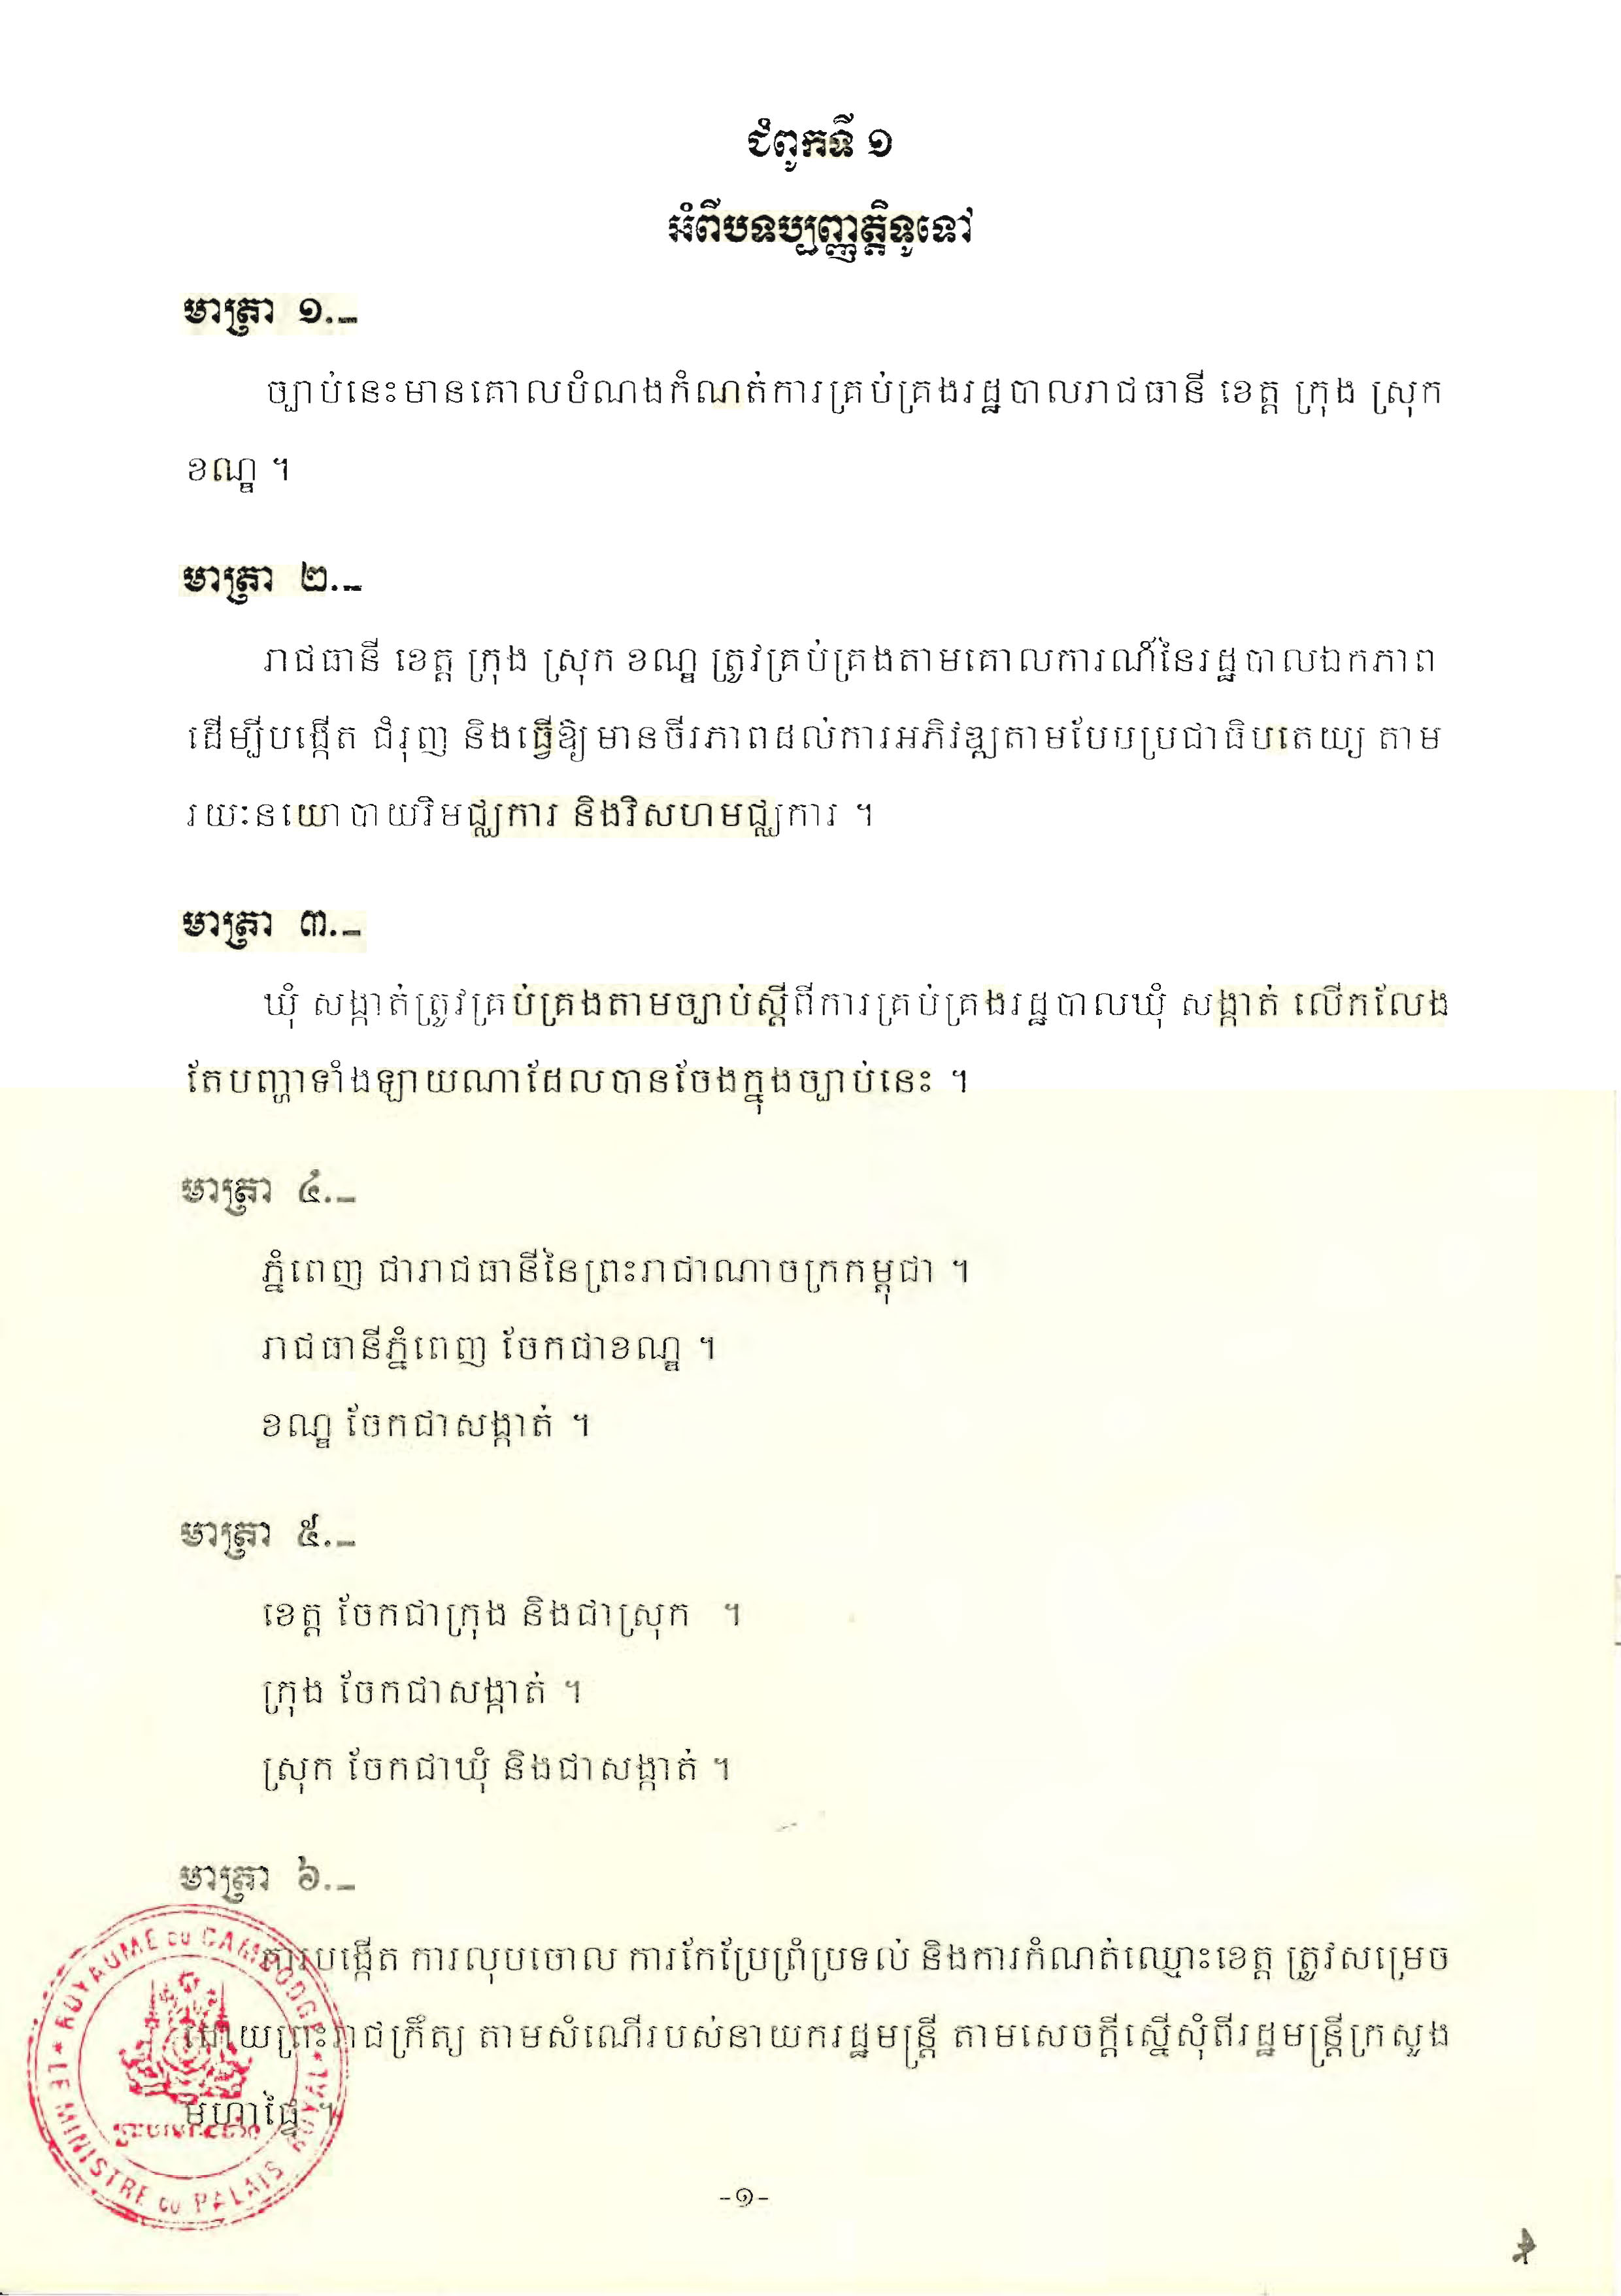 ជំពូកទី ១
អំពីបទប្បញ្ញត្តិទូទៅ
មាត្រា ១._
ច្បាប់នេះមានគោលបំណងកំណត់ការគ្រប់គ្រងរដ្ឋបាលរាជធានី ខេត្ត ក្រុង ស្រុក
ខណ្ឌ ។
មាត្រា ២._
រាជធានី ខេត្ត ក្រុង ស្រុក ខណ្ឌ ត្រូវគ្រប់គ្រងតាមគោលការណ៍នៃរដ្ឋបាលឯកភាព
ដើម្បីបង្កើត ជំរុញ និងធ្វើឱ្យមានចីរភាពដល់ការអភិវឌ្ឍតាមបែបប្រជាធិបតេយ្យ តាម
រយៈនយោបាយវិមជ្ឈការ និងវិសហមជ្ឈការ ។
មាត្រា ៣._
ឃុំ សង្កាត់ត្រូវគ្រប់គ្រងតាមច្បាប់ស្តីពីការគ្រប់គ្រងរដ្ឋបាលឃុំ សង្កាត់ លើកលែង
តែបញ្ហាទាំងឡាយណាដែលបានចែងក្នុងច្បាប់នេះ ។
មាត្រា ៤._
ភ្នំពេញ ជារាជធានីនៃព្រះរាជាណាចក្រកម្ពុជា ។
រាជធានីភ្នំពេញ ចែកជាខណ្ឌ ។
ខណ្ឌ ចែកជាសង្កាត់ ។
មាត្រា ៥._
ខេត្ត ចែកជាក្រុង និងជាស្រុក ។
ក្រុង ចែកជាសង្កាត់ ។
ស្រុក ចែកជាឃុំ និងជាសង្កាត់ ។
មាត្រា ៦._
ការបង្កើត ការលុបចោល ការកែប្រែព្រំប្រទល់ និងការកំណត់ឈ្មោះខេត្ត ត្រូវសម្រេច
ដោយព្រះរាជក្រឹត្យ តាមសំណើរបស់នាយករដ្ឋមន្ត្រី តាមសេចក្តីស្នើសុំពីរដ្ឋមន្ត្រីក្រសួង
មហាផ្ទៃ ។
ROYAUME DU CAMBODGE
LE MINISTRE DU PALAIS ROYAL
-១-